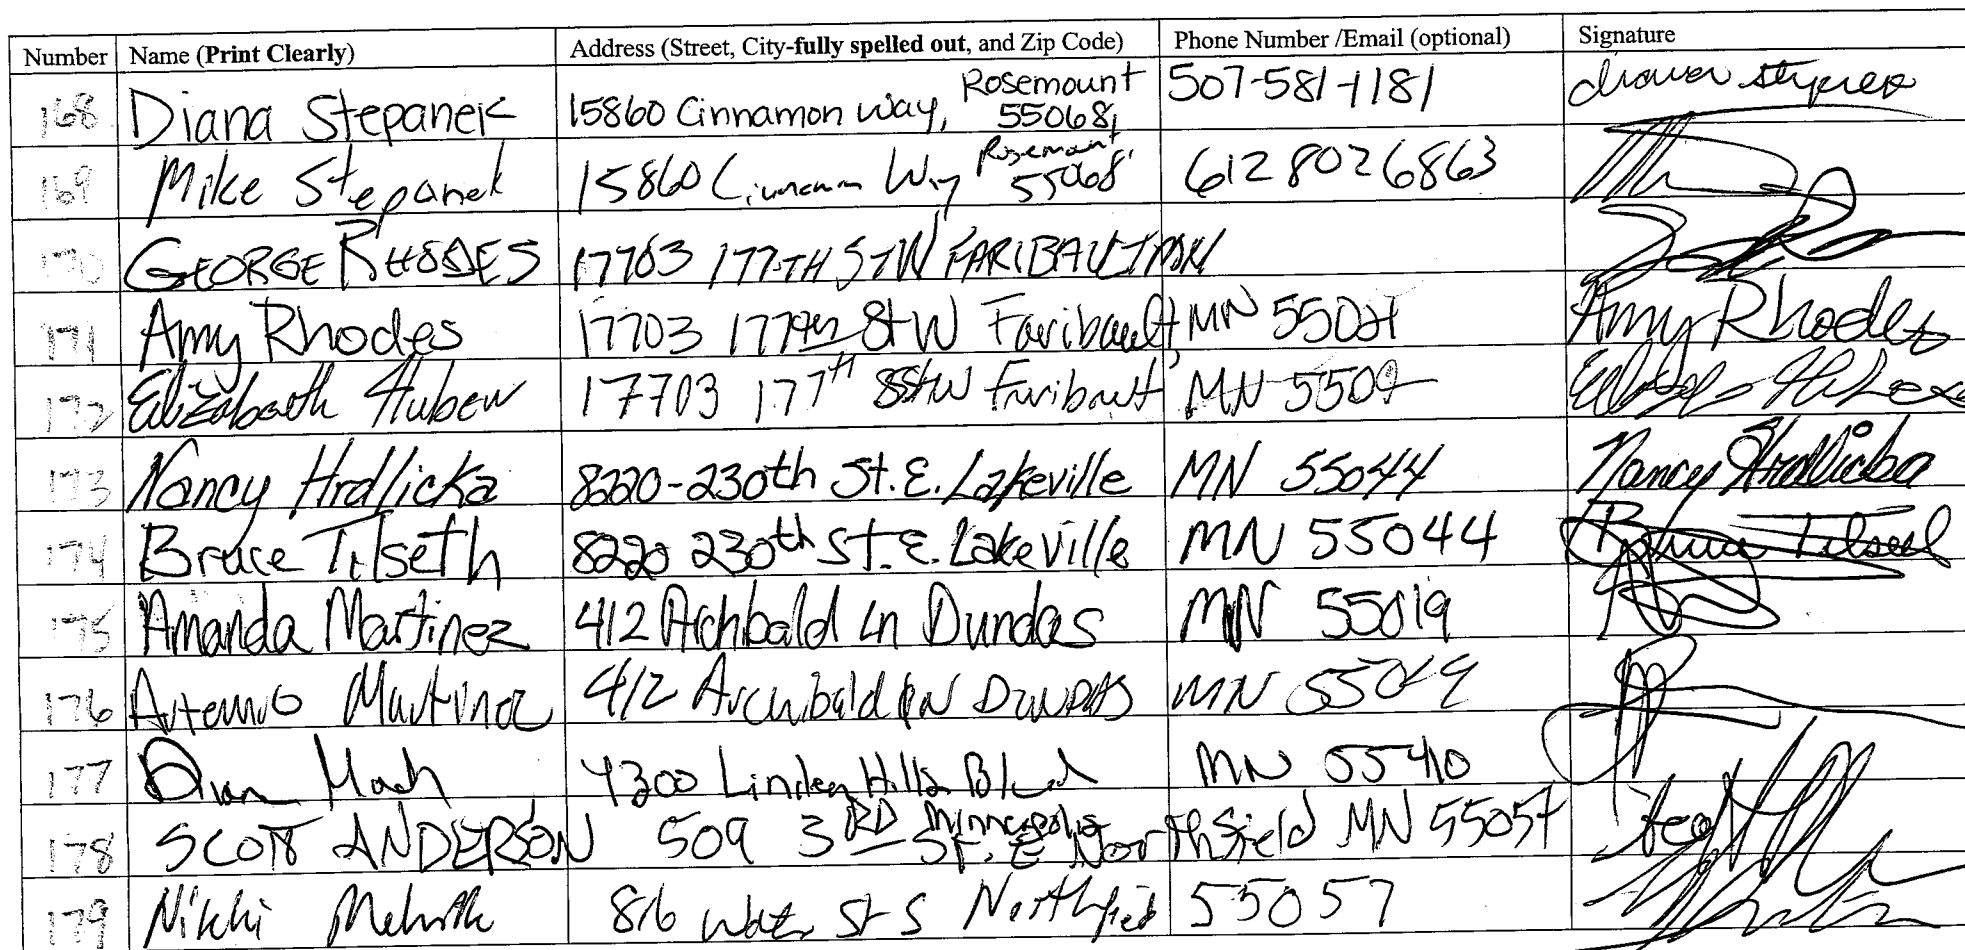 Number Name (Print Clearly) Address (Street, City-fully spelled out, and Zip Code) Phone Number /Email (optional) Signature
168 Diana Stepanek 15860 Cinnamon Way, Rosemount 55068 507-581-1181
169 Mike Stepanek 15860 Cinnamon Way Rosemount 55068 612 802 6863
170 GEORGE RHODES 17703 177TH ST W FARIBAULT MN
171 Amy Rhodes 17703 177th St W Faribault, MN 55021 Amy Rhodes
172 Elizabeth Huber 17703 177th St W Faribault MN 5502
173 Nancy Hrdlicka 8220-230th St. E. Lakeville MN 55044 Nancy Hrdlicka
174 Bruce Tilseth 8220 230th St. E. Lakeville MN 55044 Bruce Tilseth
175 Amanda Martinez 412 Archbald Ln Dundas MN 55019
176 Artemio Martinez 412 Archibald LN DUNDAS MN 55019
177 4300 Linden Hills Blvd Minneapolis MN 55410
178 SCOTT ANDERSON 509 3RD ST. E Northfield MN 55057
179 Nikki 816 Water St S Northfield 55057